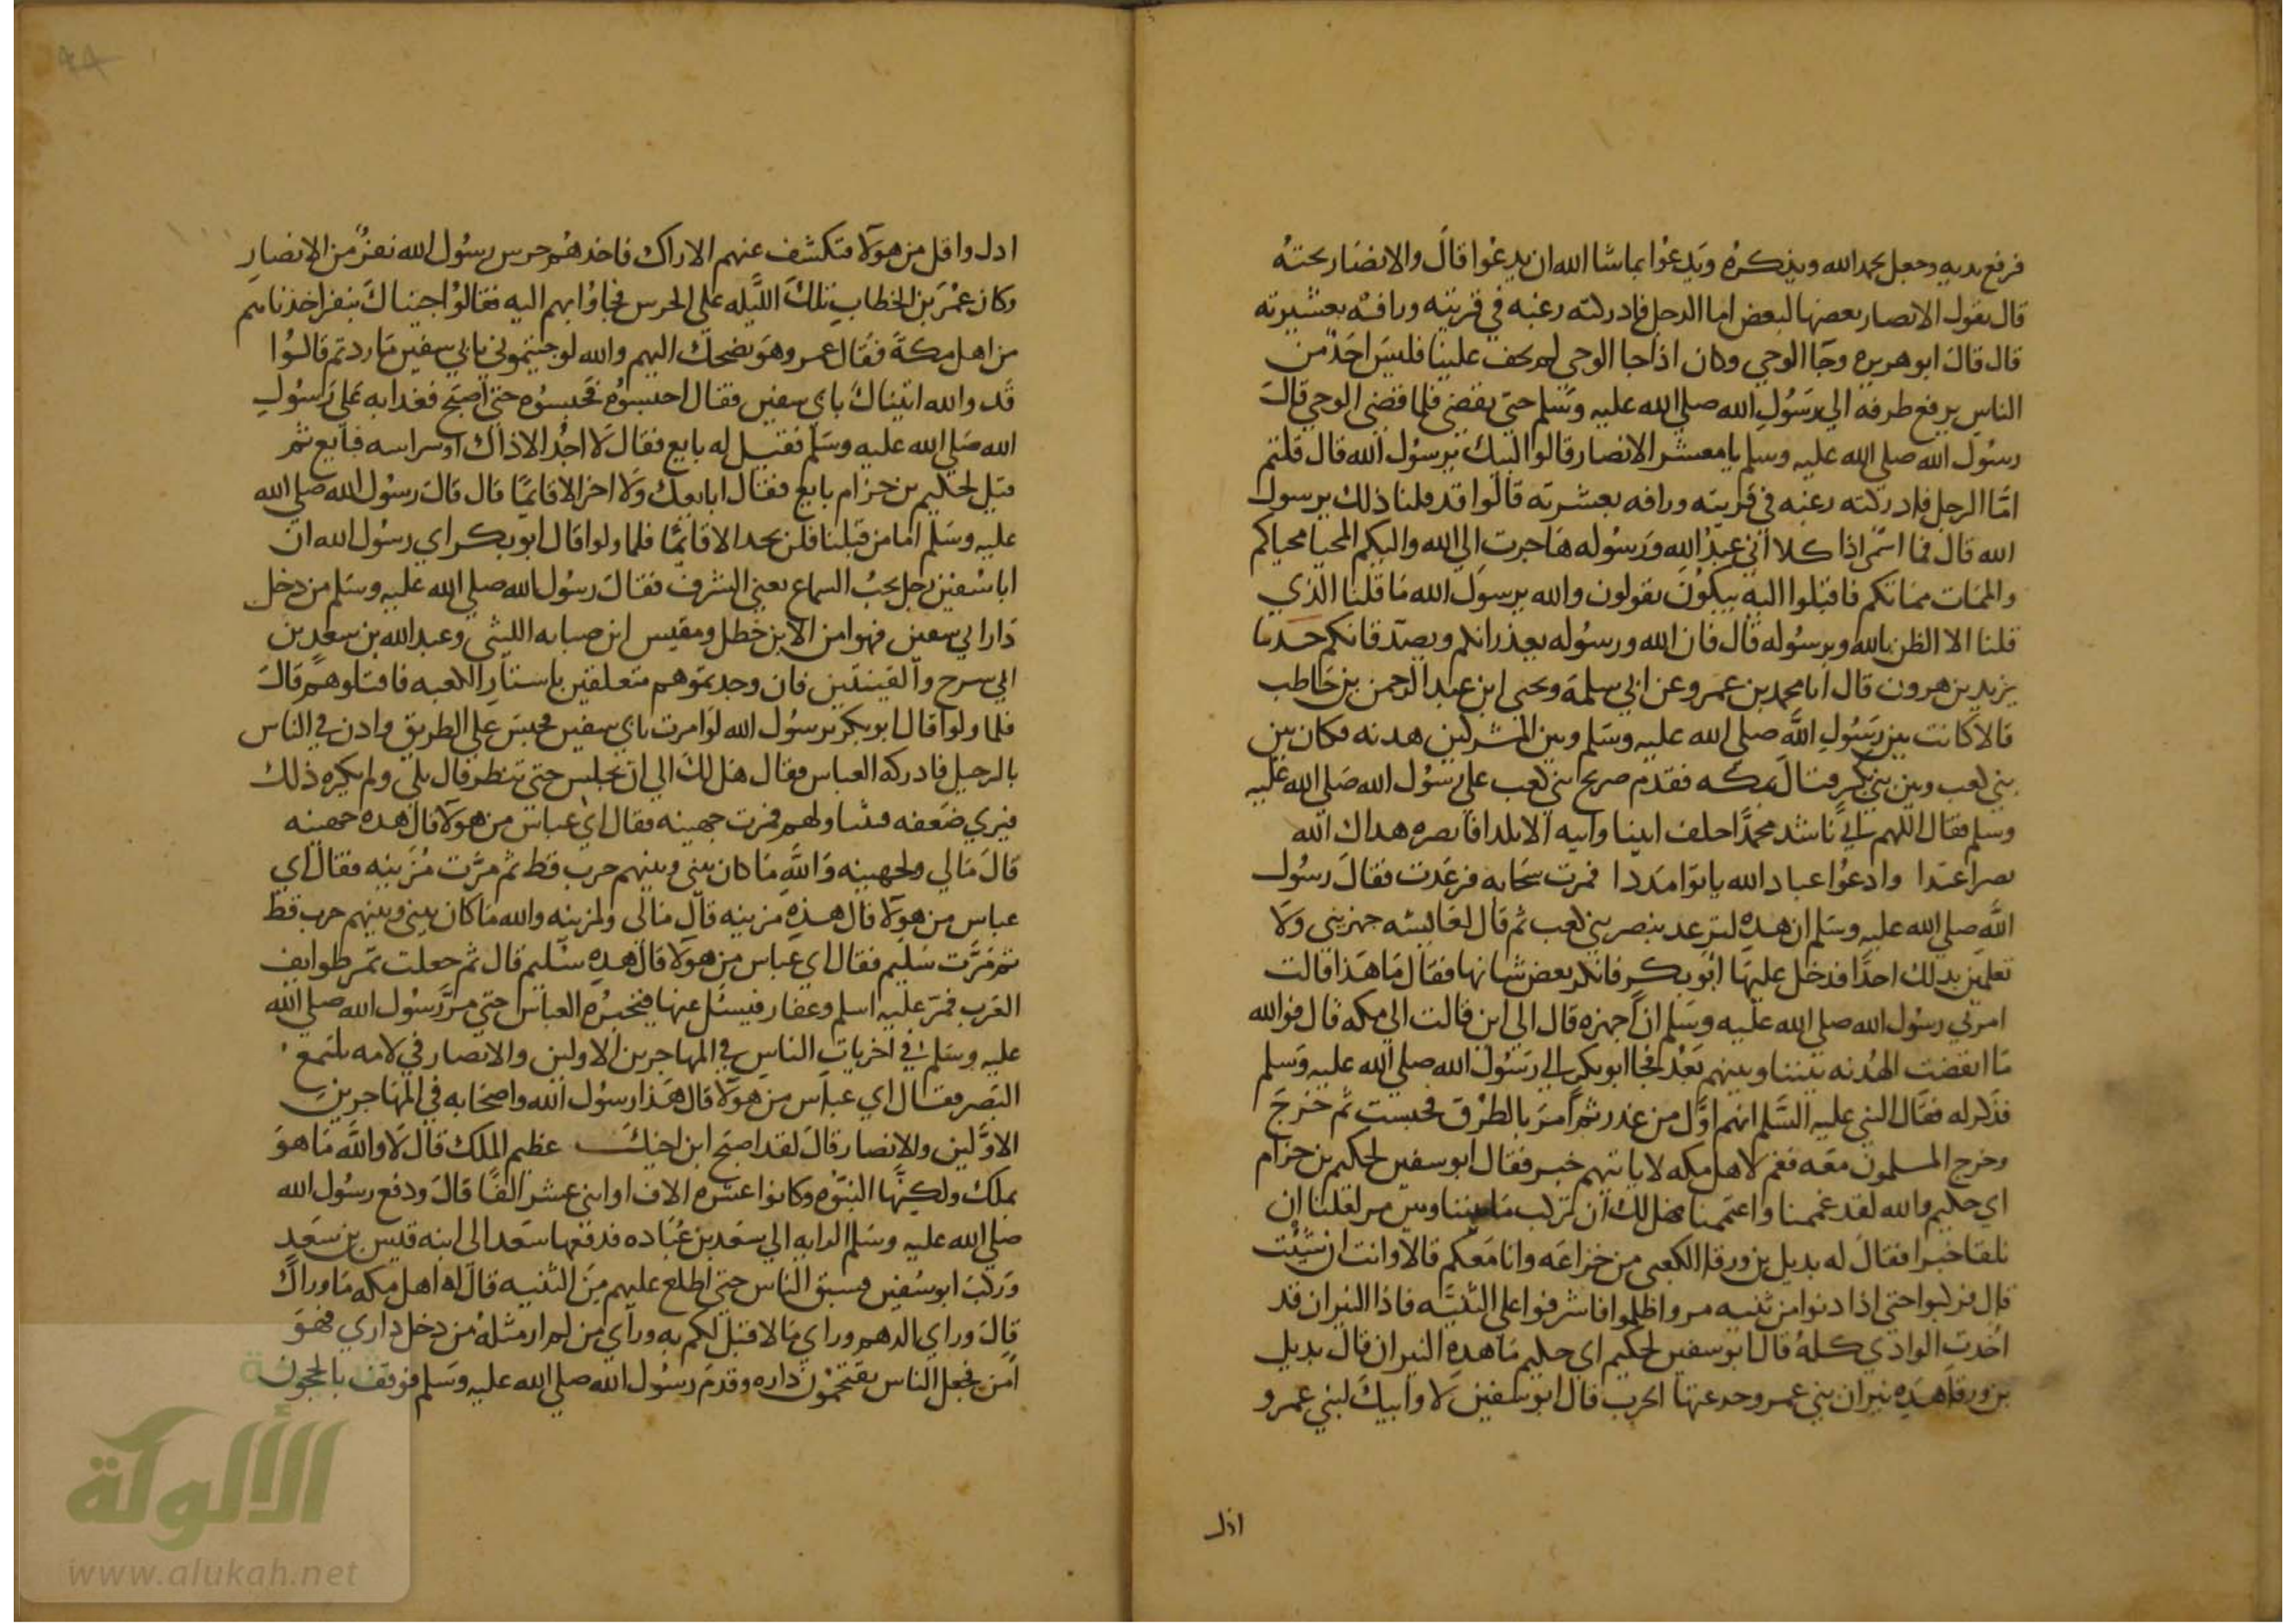 فرفع يديه وجعل يحمد الله ويذكره ويدعوا بما شا الله ان يدعوا قال والانصار تحته
قال يقول الانصار بعضها لبعض اما الرجل فادركته رغبه في قريته ورافه بعشيرته
قال قال ابو هريره وجا الوحي وكان اذا جا الوحي لم يخف علينا فليس احد من
الناس يرفع طرفه الي رسول الله صلي الله عليه وسلم حتي يقضي فلما قضي الوحي قال
رسول الله صلي الله عليه وسلم يا معشر الانصار قالوا لبيك يرسول الله قال قلتم
اما الرجل فادركته رغبه في قريته ورافه بعشيرته قالوا قد قلنا ذلك يرسول
الله قال فما اسمي اذا كلا اني عبد الله ورسوله هاجرت الي الله واليكم المحيا محياكم
والممات مماتكم فاقبلوا اليه يبكون يقولون والله يرسول الله ما قلنا الذي
قلنا الا الظن بالله وبرسوله قال فان الله ورسوله يعذرانكم ويصدقانكم حدثنا
يزيد بن هرون قال انا محمد بن عمرو عن ابي سلمة ويحيي ابن عبد الرحمن بن حاطب
قالا كانت بين رسول الله صلي الله عليه وسلم وبين المشركين هدنه فكان بين
بني كعب وبين بني بكر قتال بمكه فقدم صريخ بني كعب علي رسول الله صلي الله عليه
وسلم فقال اللهم اني ناشد محمدا حلف ابينا وابيه الاتلدا فانصره هداك الله
نصرا عتدا وادعوا عباد الله ياتوا مددا فمرت سحابه فرعدت فقال رسول
الله صلي الله عليه وسلم ان هذه لترعد بنصر بني كعب ثم قال لعائشه جهزيني ولا
تعلمين بذلك احدا فدخل عليها ابو بكر فانكر بعض شانها فقال ما هذا قالت
امرني رسول الله صلي الله عليه وسلم ان اجهزه قال الي اين قالت الي مكه قال فوالله
ما انقضت الهدنه بيننا وبينهم بعد فجا ابو بكر الي رسول الله صلي الله عليه وسلم
فذكر له فقال النبي عليه السلم انهم اول من غدر ثم امر بالطرق فحبست ثم خرج
وخرج المسلمون معه فغم لاهل مكه لا ياتيهم خبر فقال ابو سفين لحكيم بن حزام
اي حكيم والله لقد غممنا واغتممنا فهل لك ان تركب ما بيننا وبين مر لعلنا ان
نلقا خبرا فقال له بديل بن ورقا الكعبي من خزاعه وانا معكم قالا وانت ان شئت
قال فركبوا حتي اذا دنوا من ثنيه مر واظلموا فاشرفوا علي الثنيه فاذا النيران قد
اخذت الوادي كله قال ابو سفين لحكيم اي حكيم ما هذه النيران قال بديل
بن ورقا هذه نيران بني عمرو جوعتها الحرب قال ابو سفين لا وابيك لبني عمرو
اذل
اذل واقل من هولا فتكشف عنهم الاراك فاخذهم حرس رسول الله نفر من الانصار
وكان عمر بن الخطاب تلك الليله علي الحرس فجاوا بهم اليه فقالوا جيناك بنفر اخذناهم
من اهل مكة فقال عمر وهو يضحك اليهم والله لو جيتموني بابي سفين ما زدتم قالوا
قد والله اتيناك بابي سفين فقال احبسوه فحبسوه حتي اصبح فغدا به علي رسول
الله صلي الله عليه وسلم فقيل له بايع فقال لا اجد الا ذاك او شرا منه فبايع ثم
قيل لحكيم بن حزام بايع فقال ابايعك ولا اخر الا قائما قال قال رسول الله صلي الله
عليه وسلم اما من قبلنا فلن تخر الا قائما فلما ولوا قال ابو بكر اي رسول الله ان
ابا سفين رجل يحب السماع يعني الشرف فقال رسول الله صلي الله عليه وسلم من دخل
دار ابي سفين فهو امن الا ابن خطل ومقيس ابن صبابه الليثي وعبد الله بن سعد بن
ابي سرح والقينتين فان وجدتموهم متعلقين باستار الكعبه فاقتلوهم قال
فلما ولوا قال ابو بكر يرسول الله لو امرت بابي سفين فحبس علي الطريق واذن في الناس
بالرحيل فادركه العباس فقال هل لك الي ان تجلس حتي تنظر قال بلي ولم يكره ذلك
فيري ضعفه فسالهم فمرت جهينه فقال اي عباس من هولا قال هذه جهينه
قال مالي ولجهينه والله ما كان بيني وبينهم حرب قط ثم مرت مزينه فقال اي
عباس من هولا قال هذه مزينه قال مالي ولمزينه والله ما كان بيني وبينهم حرب قط
ثم مرت سليم فقال اي عباس من هولا قال هذه سليم قال ثم جعلت تمر طوايف
العرب فمر عليه اسلم وغفار فيسئل عنها فيخبره العباس حتي مر رسول الله صلي الله
عليه وسلم في اخريات الناس في المهاجرين الاولين والانصار في لامه تلتمع
البصر فقال اي عباس من هولا قال هذا رسول الله واصحابه في المهاجرين
الاولين والانصار قال لقد اصبح ابن اخيك عظيم الملك قال لا والله ما هو
بملك ولكنها النبوه وكانوا عشره الاف او اثني عشر الفا قال ودفع رسول الله
صلي الله عليه وسلم الرايه الي سعد بن عباده فدفعها سعد الي ابنه قيس بن سعد
وركب ابو سفين فسبق الناس حتي اطلع عليهم من الثنيه قال له اهل مكه ما وراك
قال وراي الدهم وراي ما لا قبل لكم به وراي من لم ار مثله من دخل داري فهو
امن فجعل الناس يقتحمون داره وقدم رسول الله صلي الله عليه وسلم فوقف بالحجون
الألوكة
www.alukah.net